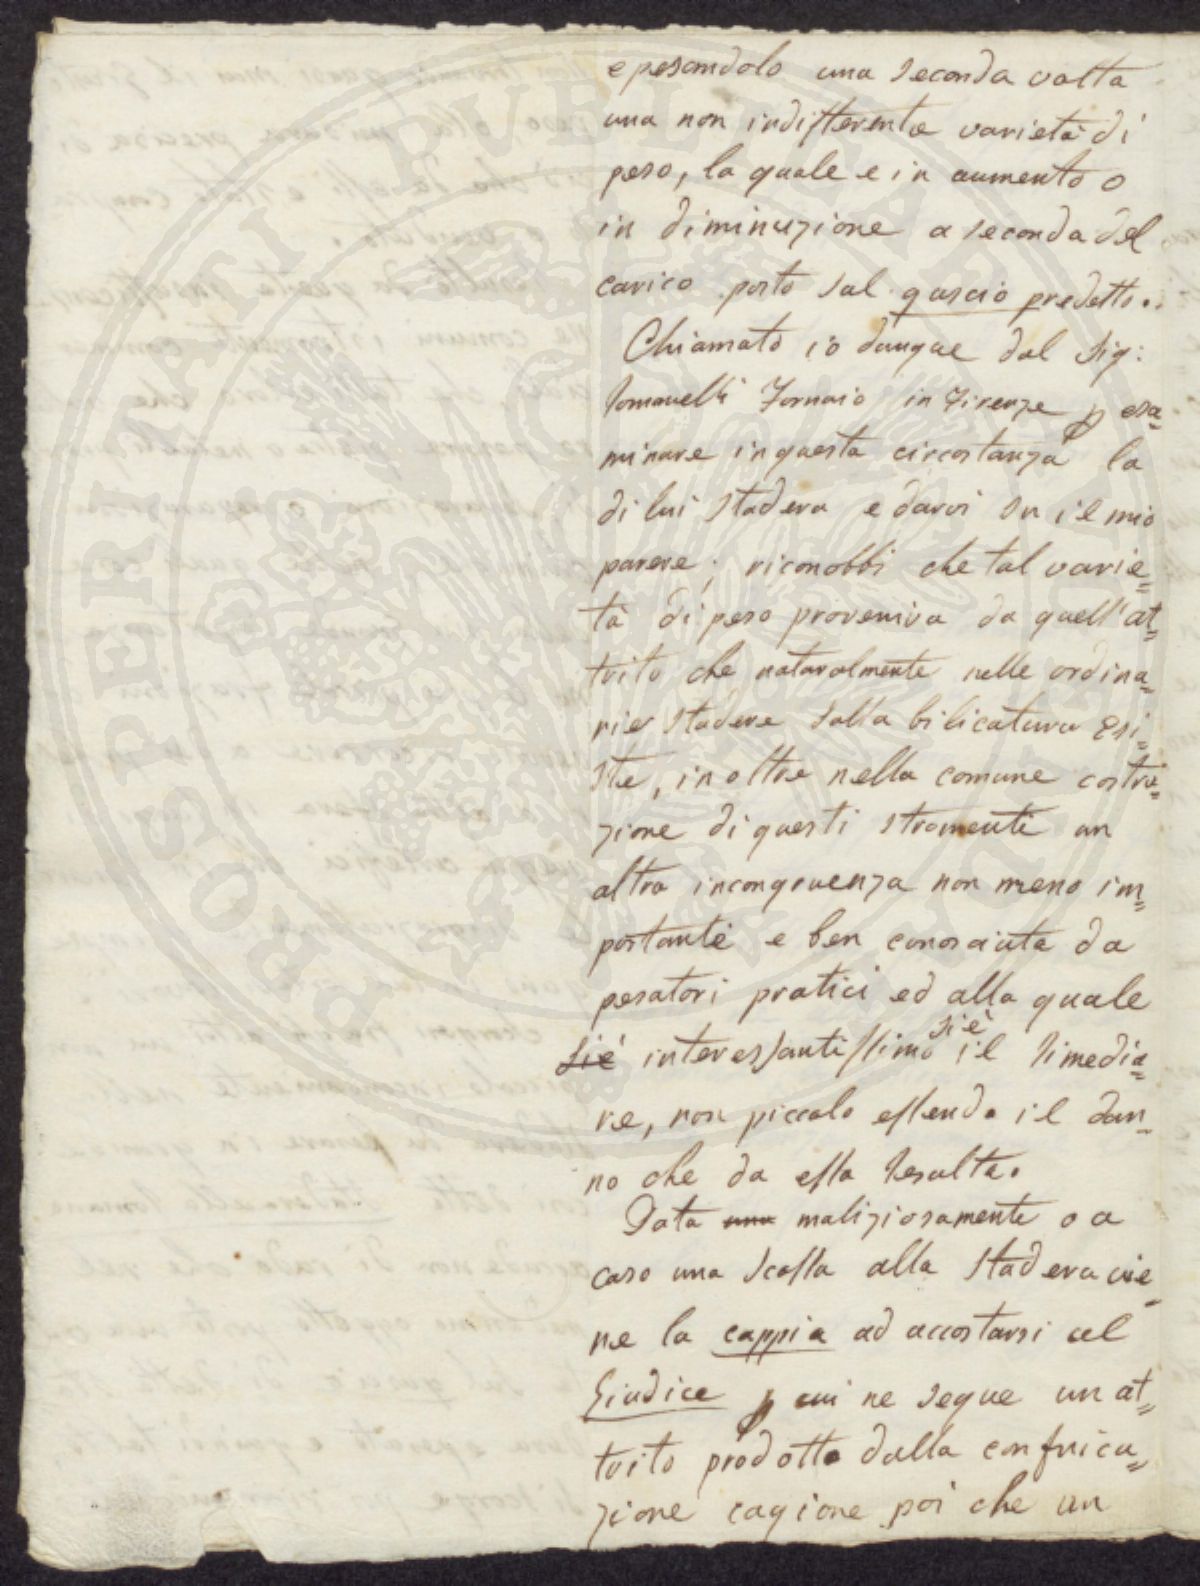 e pesandolo una seconda volta
una non indifferente varietà di
peso, la quale e in aumento o
in diminuzione a seconda del
carico posto sul guscio predetto.
Chiamato io dunque dal Sig:
Romanelli Fornaio in Firenze p esa=
minare in questa circostanza la
di lui stadera e darvi su il mio
parere; riconobbi che tal varie=
tà di peso proveniva da quell'at=
trito che naturalmente nelle ordina=
rie stadere sulla bilicatura esi=
ste, inoltre nella comune costru=
zione di questi stromenti un
altra incongruenza non meno im=
portante e ben conosciuta da
pesatori pratici ed alla quale
si è interessantissimo si è il rimedia=
re, non piccolo essendo il dan=
no che da essa resulta.
Data una maliziosamente o a
caso una scossa alla stadera vie=
ne la cappia ad accostarsi al
Giudice p cui ne segue un at=
trito prodotto dalla confrica=
zione cagione poi che un
PROSPERITATI PUBLICAE AUGENDAE